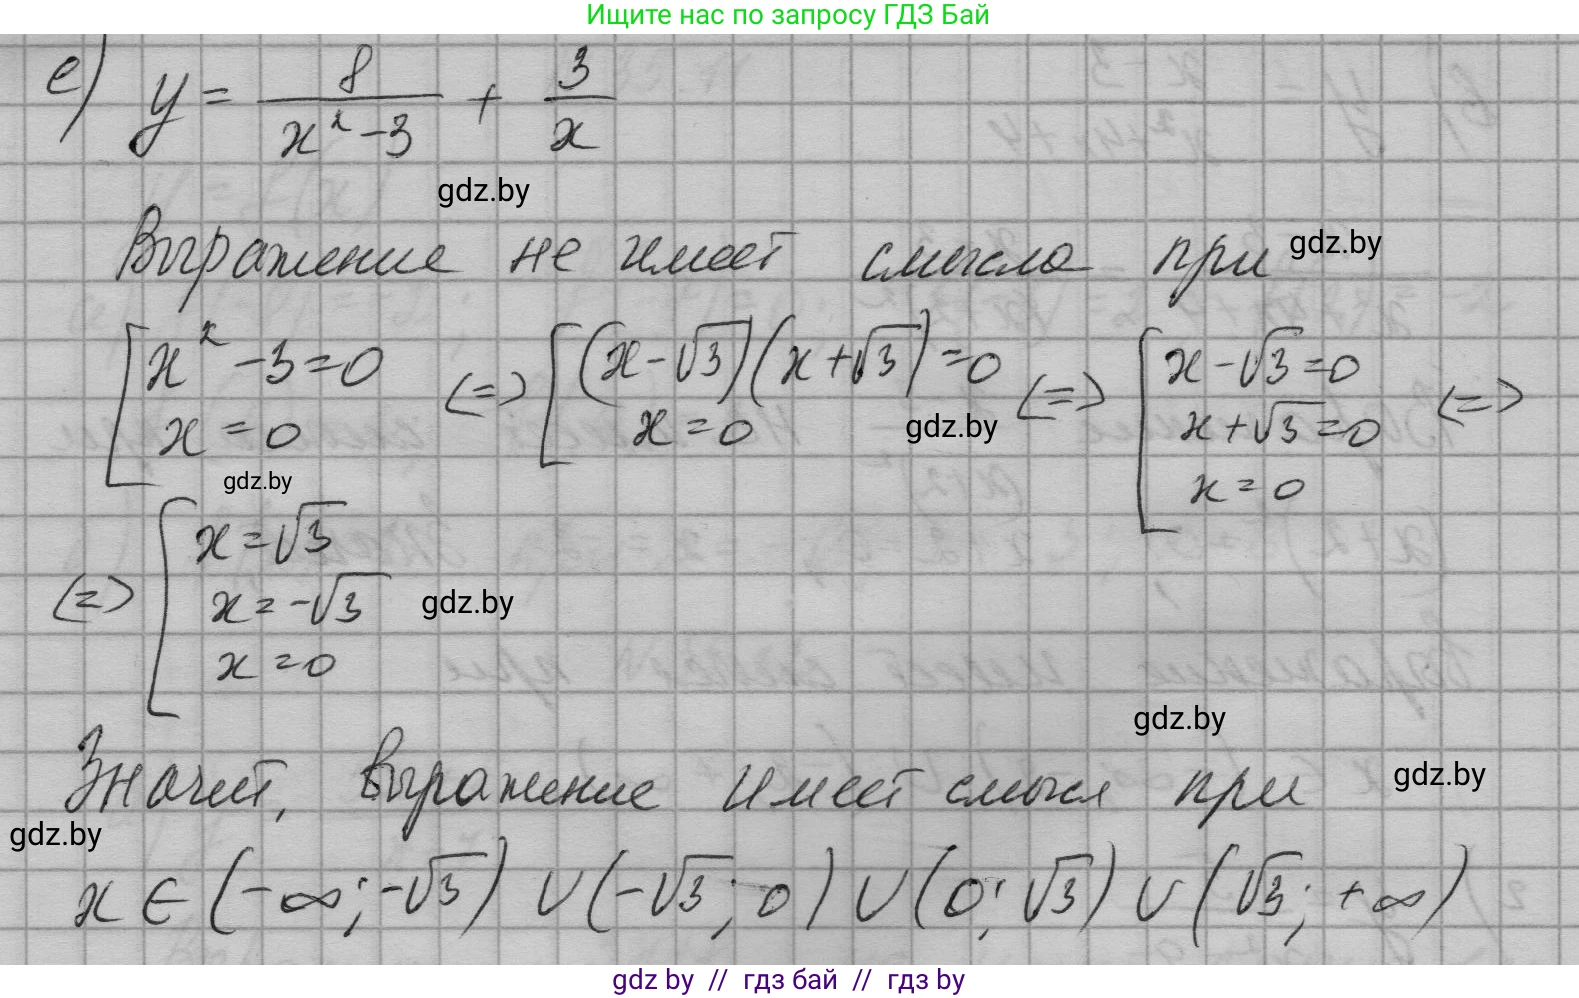 Ищите нас по запросу ГДЗ Бай
е) y = 8/(x² - 3) + 3/x
gdz.by
Выражение не имеет смысла при gdz.by
[x² - 3 = 0; x = 0 (=) [(x - √3)(x + √3) = 0; x = 0 (=) [x - √3 = 0; x + √3 = 0; x = 0 (=)
gdz.by
gdz.by
(=) [x = √3; x = -√3; x = 0
gdz.by
gdz.by
Значит, выражение имеет смысл при gdz.by
gdz.by
x ∈ (-∞; -√3) ∪ (-√3; 0) ∪ (0; √3) ∪ (√3; +∞)
gdz by // гдз бай // гдз by